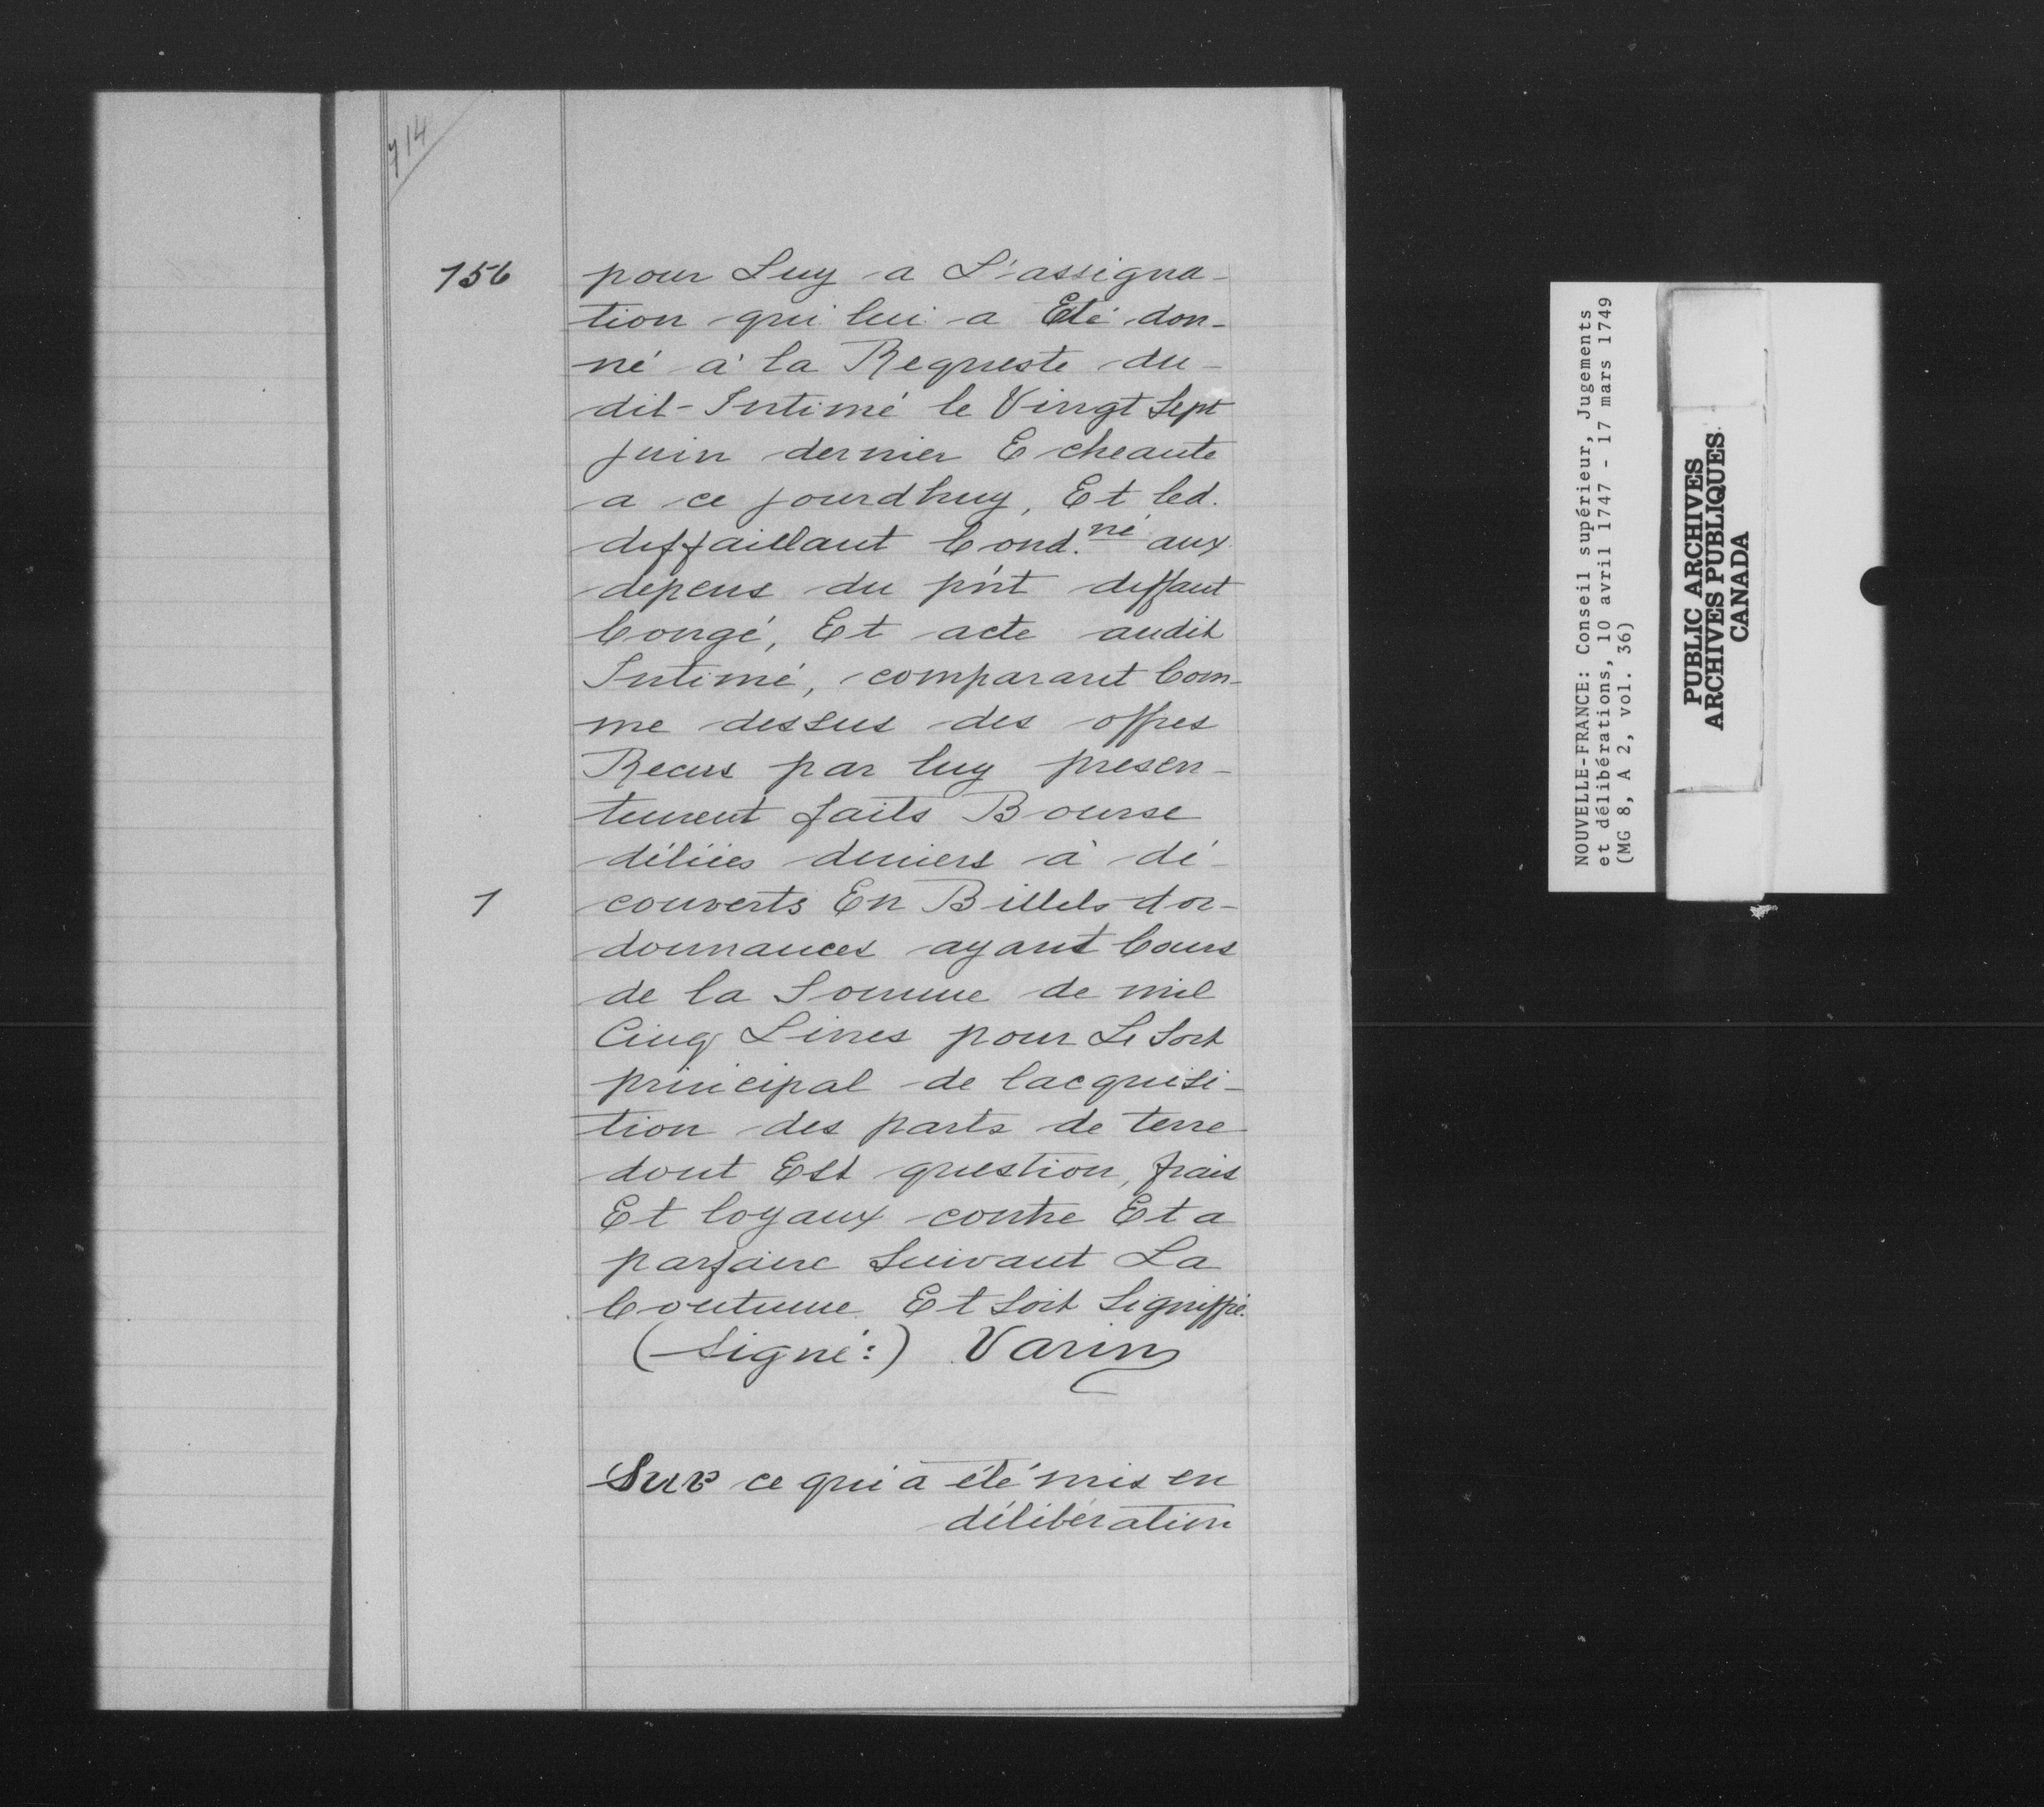 714
156
pour Luy a L'assigna-
tion qui lui a Eté don-
né à la Requeste du-
dit-Intimé le Vingt Sept
juin dernier Echeante
a ce jourdhuy, Et led.
deffaillant Cond.né aux
depens du pñt deffaut
Congé, Et acte audit
Intimé, comparant Com-
me dessus des offres
Recus par luy presen-
tement faits Bourse
déliées deniers à dé-
1
couverts En Billets dor-
donnances ayant Cours
de la Somme de mil
Cinq Livres pour Le Sort
principal de lacquisi-
tion des parts de terre
dont Est question, frais
Et loyaux contre Et a
parfaire Suivant La
Coutume Et Soit Signiffié.
(Signé:) Varin
Sur ce qui a été mis en
délibération
NOUVELLE-FRANCE: Conseil supérieur, Jugements
et délibérations, 10 avril 1747 - 17 mars 1749
(MG 8, A 2, vol. 36)
PUBLIC ARCHIVES
ARCHIVES PUBLIQUES
CANADA